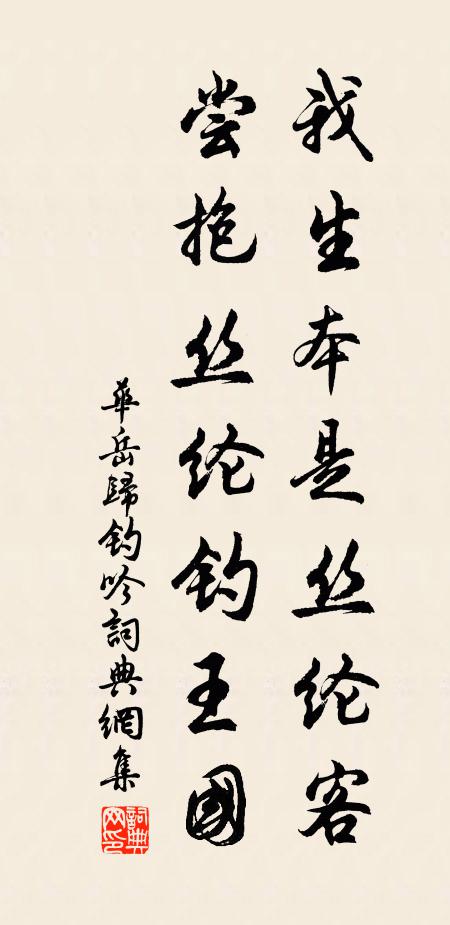 我生本是丝纶客
尝抱丝纶钓王國
華岳歸钓吟詞典網集
詞典网印